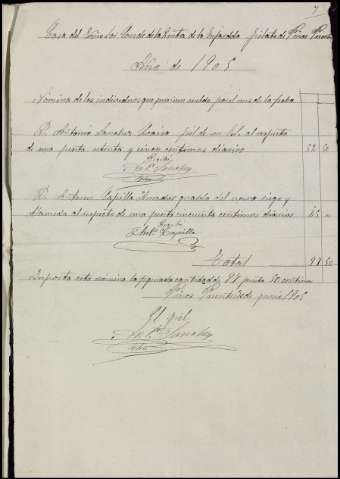 7
Casa del Excmo Sor Conde de la Puebla de
Pinos Puente
Año de 1905
Nómina de los individuos que perciben sueldo por el mes de la fecha
D. Antonio Sanchez
al respecto
de una peseta setenta y cinco centimos diarios 52 50
Recibí
Antº Sanchez
D. Antonio Capilla guarda del nuevo riego y
Alameda al respecto de una peseta cincuenta centimos diarios 45 "
Recibí
Antº Capilla
Total 97 50
Importa esta nómina la figurada cantidad de 97 pesetas 50 centimos
Pinos Puente 1905
El
Antº Sanchez